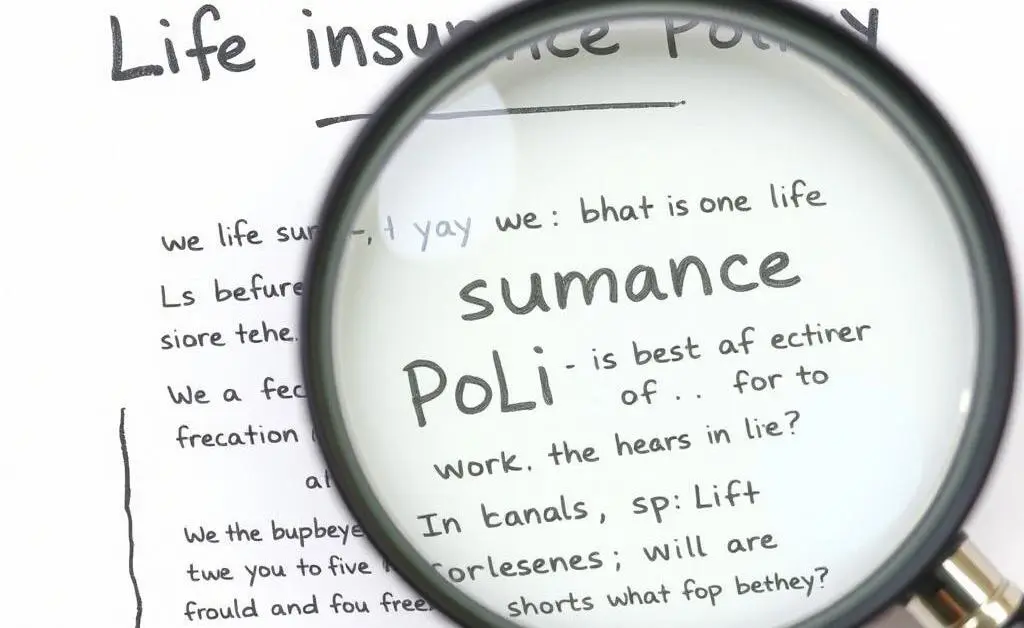 Life insurance Policy
we life sur -, t yay we : bhat is one life
Ls befure sumance
siore tehe.
PoLi - is best af ectirer
We a fec of . . for to
frecation work. the hears in lie?
at
In tanals, sp: Lift
We the bupbeye
twe you to five forlesenes ; will are
frould and fou free. shorts what fop bethey?